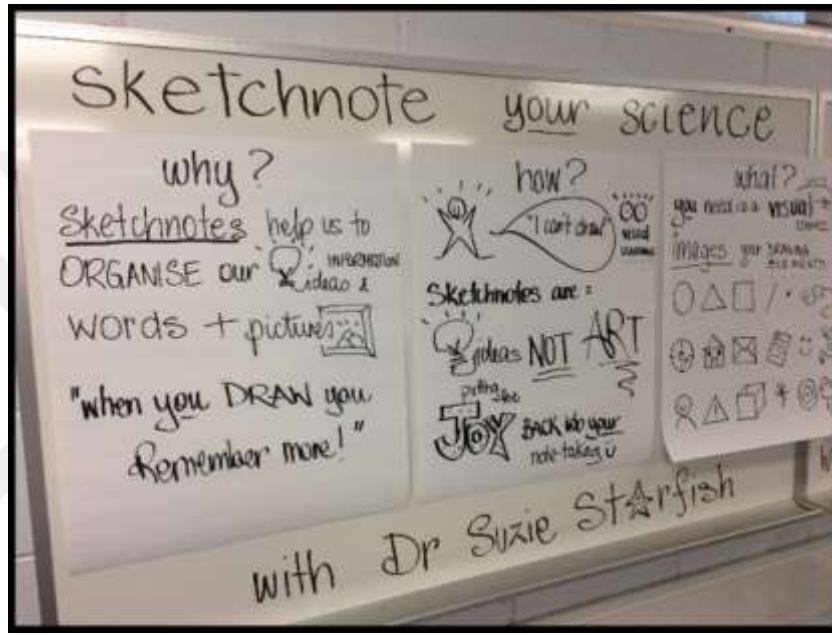 sketchnote your science
why?
Sketchnotes help us to
ORGANISE our ideas &
INFORMATION
words + pictures
"when you DRAW you
Remember more!"
how?
"I can't draw"
visual
Sketchnotes are:
ideas NOT ART
putting the
JOY BACK into your
note-taking
what?
you need is a visual
images your DRAWING
ELEMENTS
with Dr Suzie Starfish